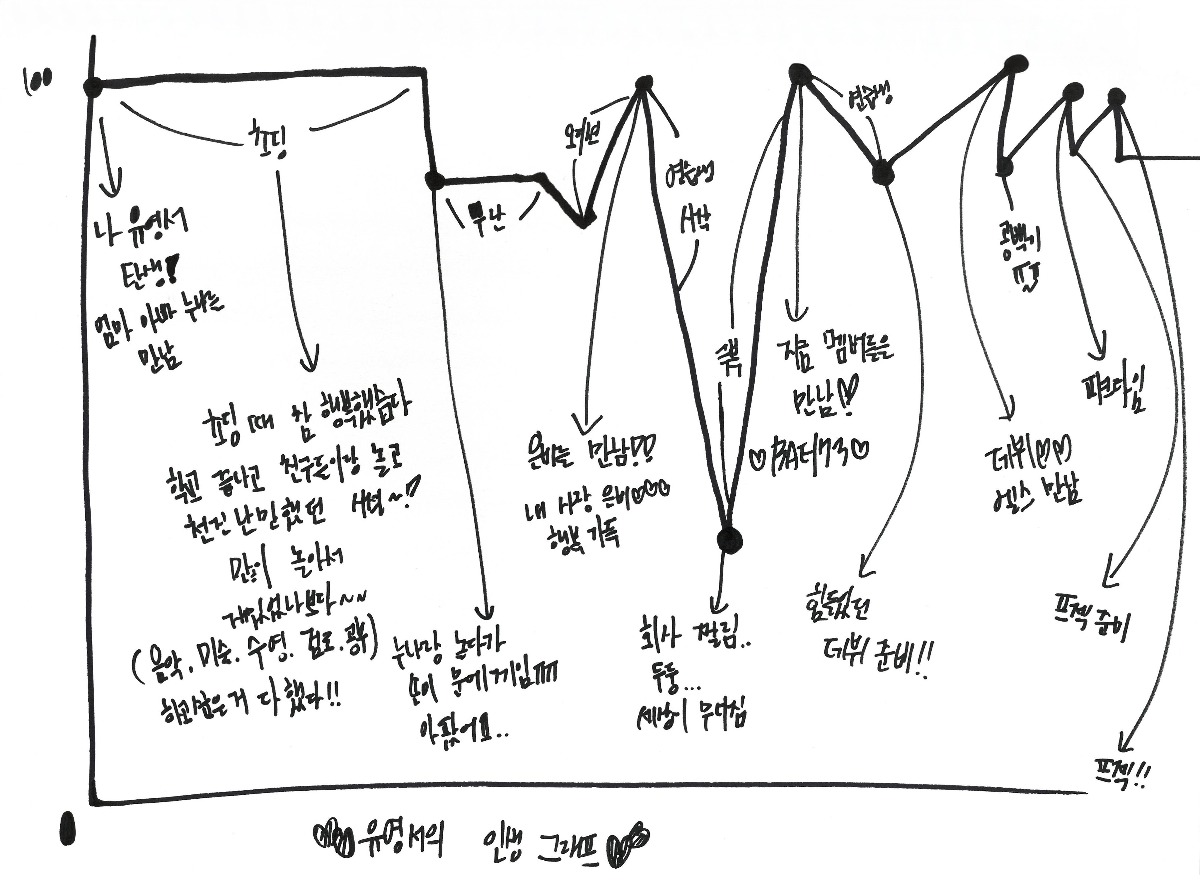 100
초딩
나 유영서
탄생!
엄마 아빠 누나는
만남
초딩 때 참 행복했습다
학교 끝나고 친구들이랑 놀고
천진난만했던 시절~!
많이 놀아서
재밌었나보다~~
(음악, 미술, 수영, 검도, 공부)
하고싶은거 다 했다!!
무난
누나랑 놀다가
손이 문에 끼임ㅠㅠ
아팠어요..
오디션
연습생
시작
은비는 만남!!
내 사랑 은비♡♡♡
행복 가득
쉼
회사 짤림..
두둥...
세상이 무너짐
지금 멤버들을
만남!!
연습생
힘들었던
데뷔 준비!!
공백기
ㅠㅠ
데뷔♡♡
엘스 만남
파크타임
프젝 준비
프젝!!
0
유영서의 인생 그래프